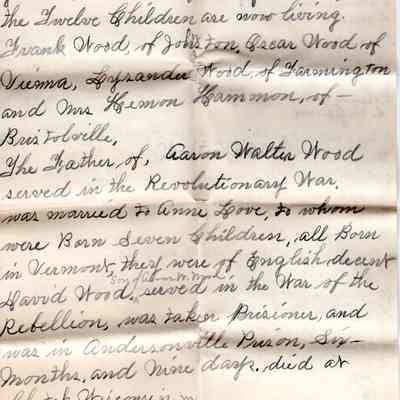 the Twelve Children are now living.
Frank Wood, of Johnston, Oscar Wood of
Vienna, Lysander Wood, of Farmington
and Mrs Hemon Hammon, of —
Bristolville,
The Father, of, Aaron Walter Wood
served in the Revolutionary War.
was married to Anne Love, to whom
were Born Seven Children, all Born
in Vermont, they were of English decent
Son of Aaron W. Wood
David Wood, served in the War of the
Rebellion, was taken Prisioner, and
was in Andersonville Prison, Six-
months, and Nine days, died at
Wisconsin